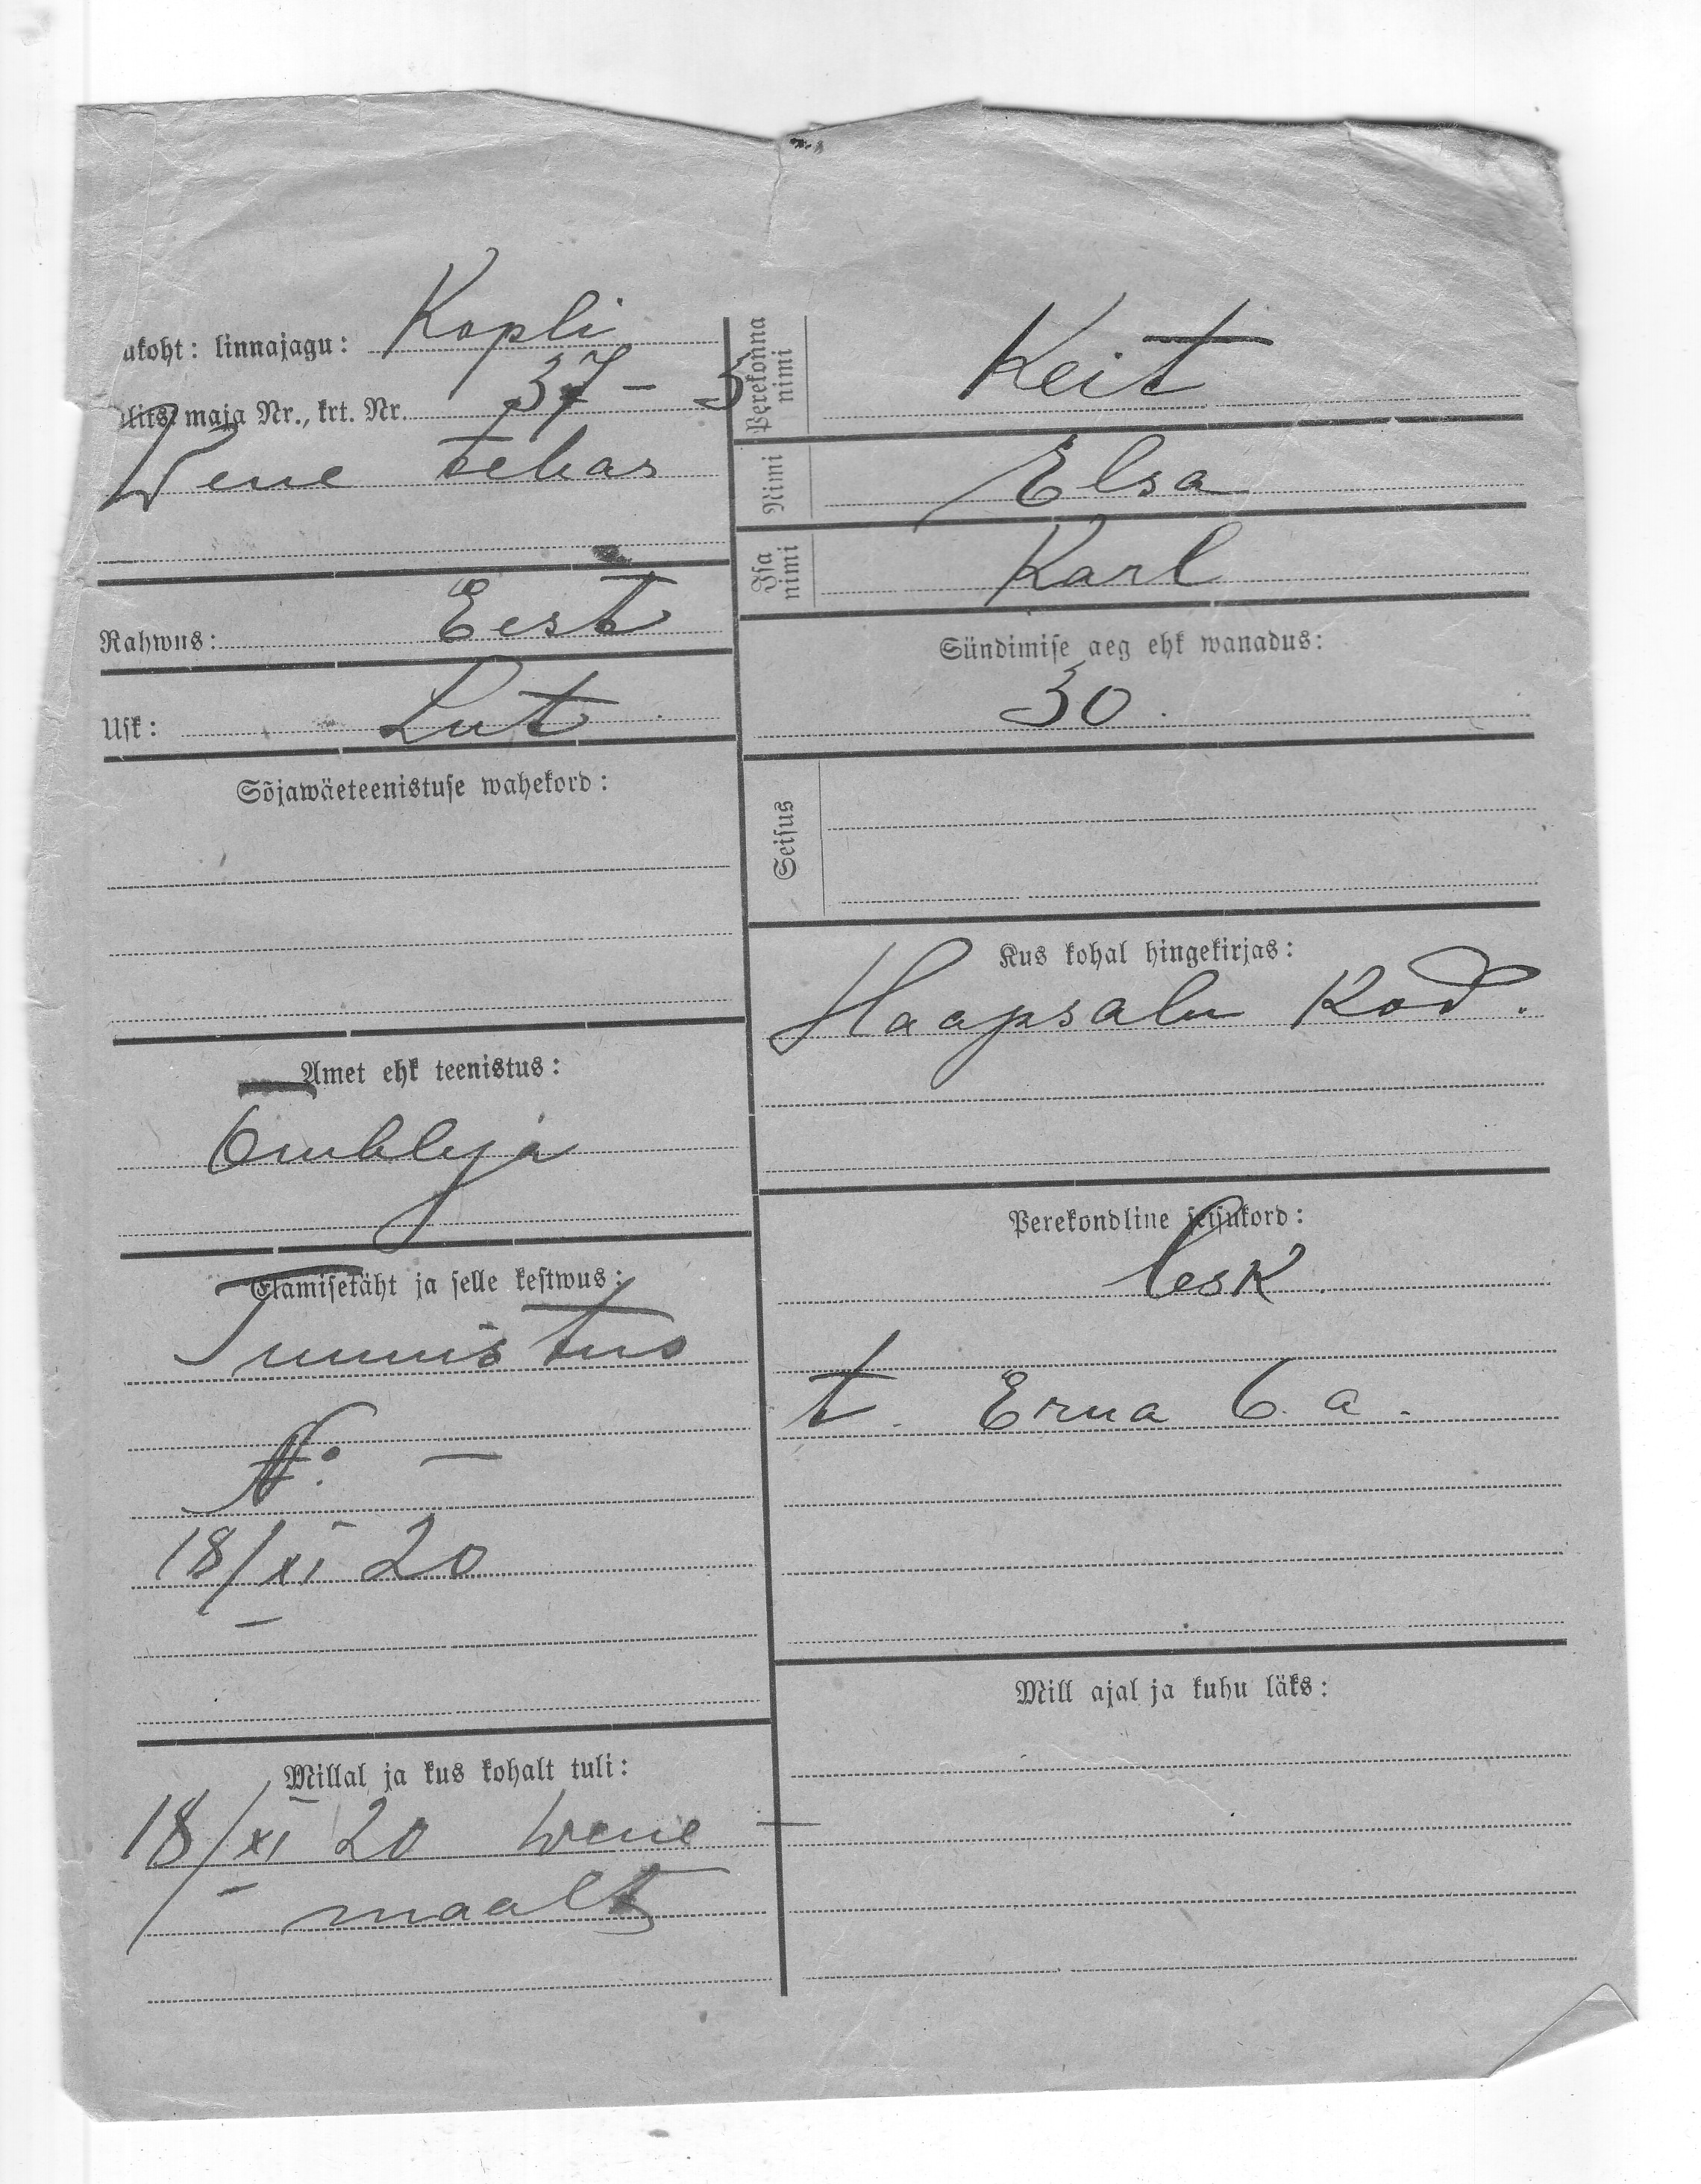 ukoht: linnajagu: Kopli
ulits maja Nr., krt. Nr. 37 - 3
Wene tehas
Rahwus: Eest
Usk: Lut
Sõjawäeteenistuse wahekord:
Amet ehk teenistus:
Õmbleja
Elamisetäht ja selle kestwus:
Tunnistus
№ —
18/XI 20
Millal ja kus kohalt tuli:
18/XI 20 Wene-
maalt
Perekonna
nimi
Keit
Nimi Elsa
Isa
nimi
Karl
Sündimise aeg ehk wanadus:
30.
Seisus
Kus kohal hingekirjas:
Haapsalu Kod.
Perekondline seisukord:
lesk.
t. Erna 6 a.
Mill ajal ja kuhu läks: